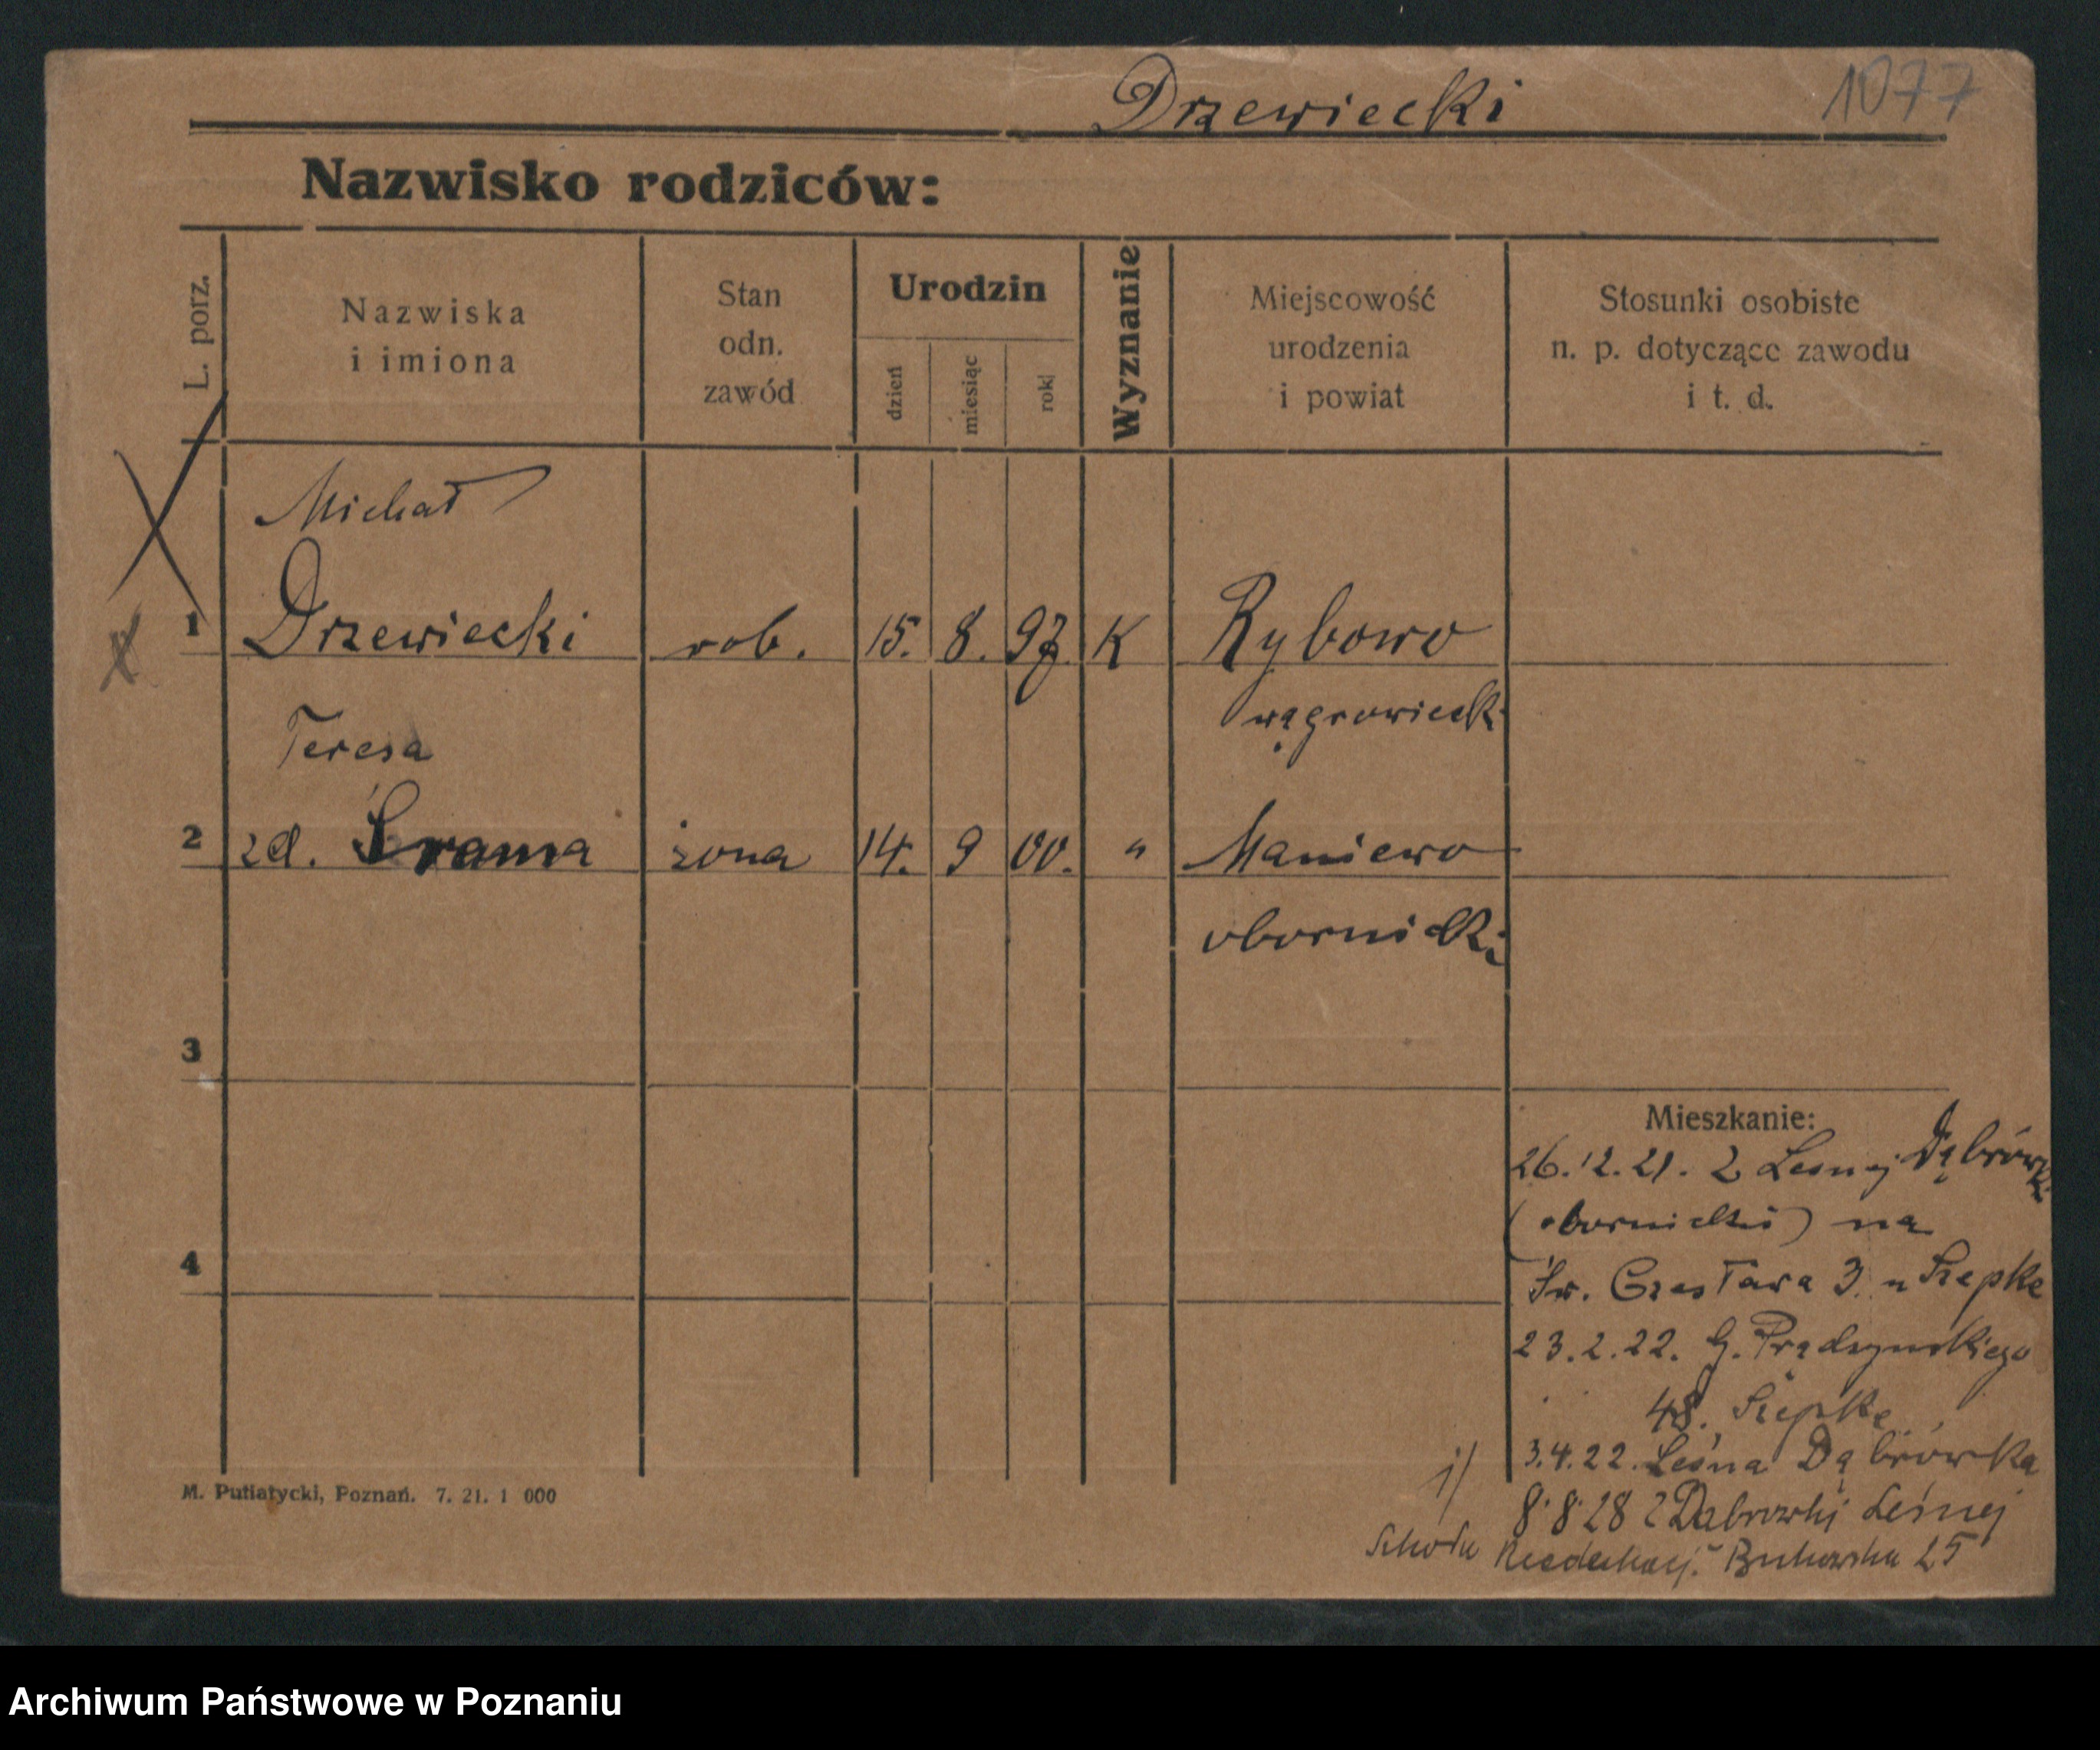 Drzewiecki
1077
Nazwisko rodziców:
L. porz.
Nazwiska
i imiona
Stan
odn.
zawód
Urodzin
dzień
miesiąc
rok
Wyznanie
Miejscowość
urodzenia
i powiat
Stosunki osobiste
n. p. dotyczące zawodu
i t. d.
Michał
1 Drzewiecki rob. 15. 8. 97. K Rybowo
wągrowiecki
Teresa
2 zd. Srama żona 14. 9 00. " Maniewo
obornicki
3
4
Mieszkanie:
26.12.21. z Lesnej Dąbrówki
(obornicki) na
Św. Czesława 3. u Szepke
23.2.22. G. Prądzynskiego
48. Szepke
3.4.22. Leśna Dąbrówka
8.8.28 z Dąbrowki Leśnej
Bukowska 25
M. Putiatycki, Poznań. 7. 21. 1 000
Archiwum Państwowe w Poznaniu